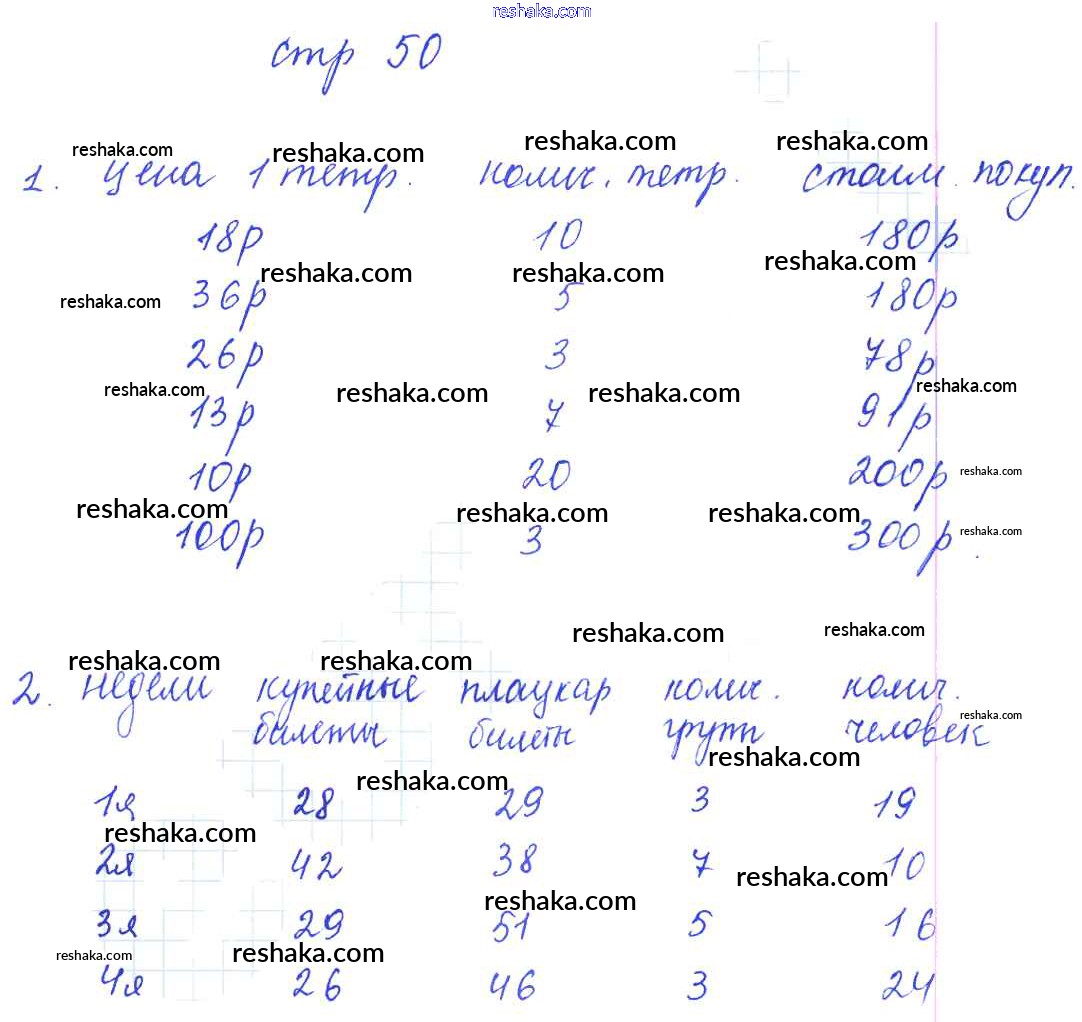 reshaka.com
стр 50
reshaka.com reshaka.com reshaka.com reshaka.com
1. цена 1 тетр. колич. тетр. стоим. покуп.
18р 10 180р
reshaka.com reshaka.com reshaka.com reshaka.com
36р 5 180р
26р 3 78р
reshaka.com reshaka.com reshaka.com reshaka.com
13р 7 91р
10р 20 200р reshaka.com
reshaka.com reshaka.com reshaka.com
100р 3 300р. reshaka.com
reshaka.com reshaka.com
reshaka.com reshaka.com
2. недели купейные плацкар колич. колич.
билеты билеты групп человек reshaka.com
reshaka.com reshaka.com
1я 28 29 3 19
reshaka.com
2я 42 38 7 10
reshaka.com reshaka.com
3я 29 51 5 16
reshaka.com reshaka.com
4я 26 46 3 24